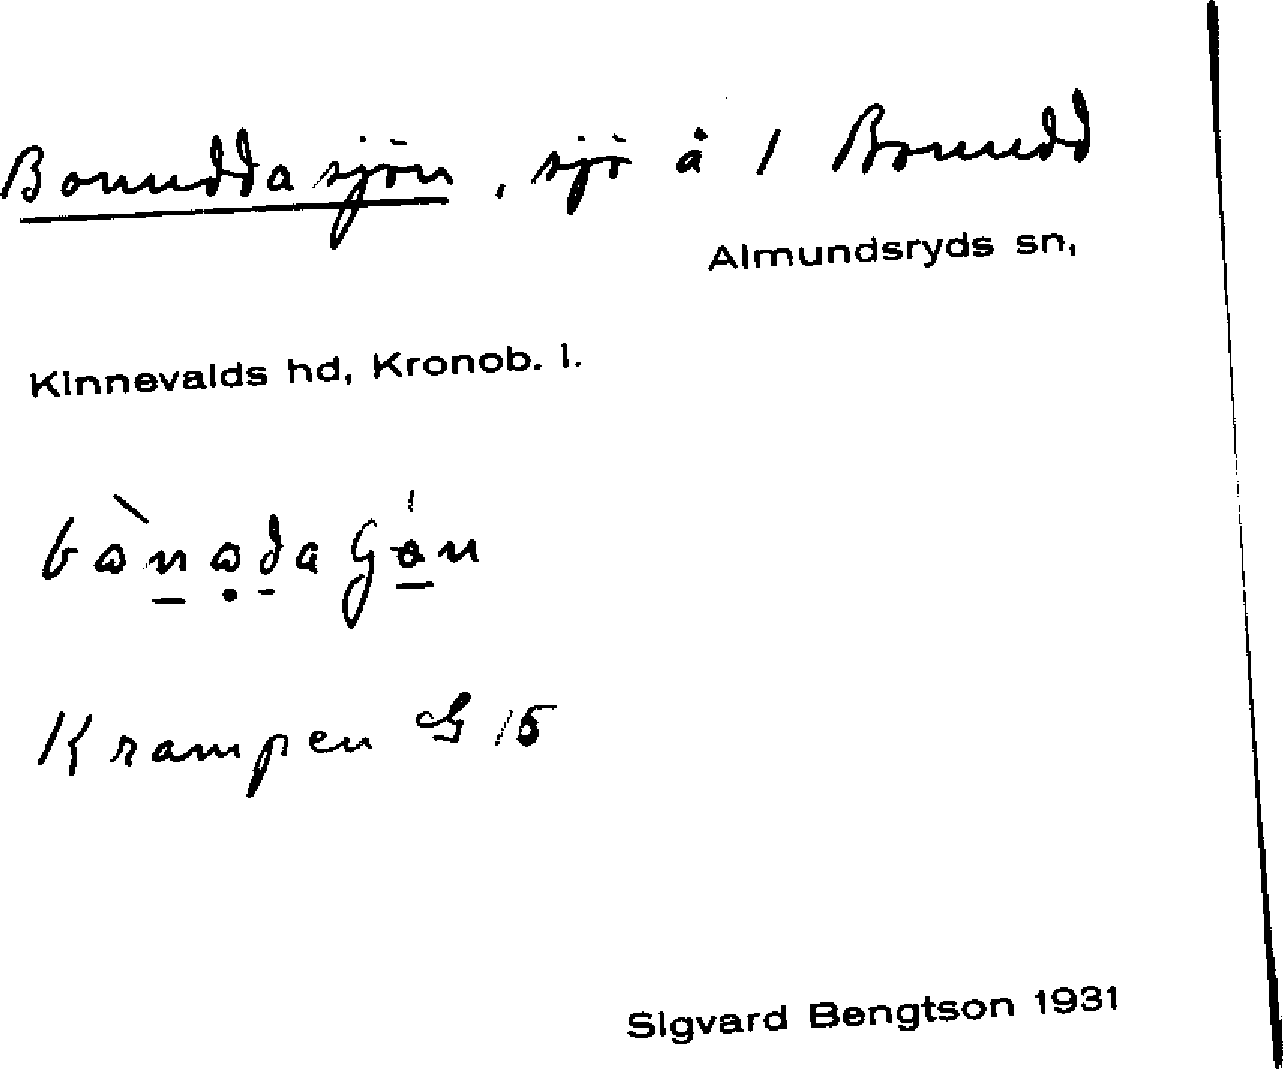 Bonuddasjön, sjö å 1 Bonudd
Almundsryds sn,
Kinnevalds hd, Kronob. l.
Krampen G 15
Sigvard Bengtson 1931